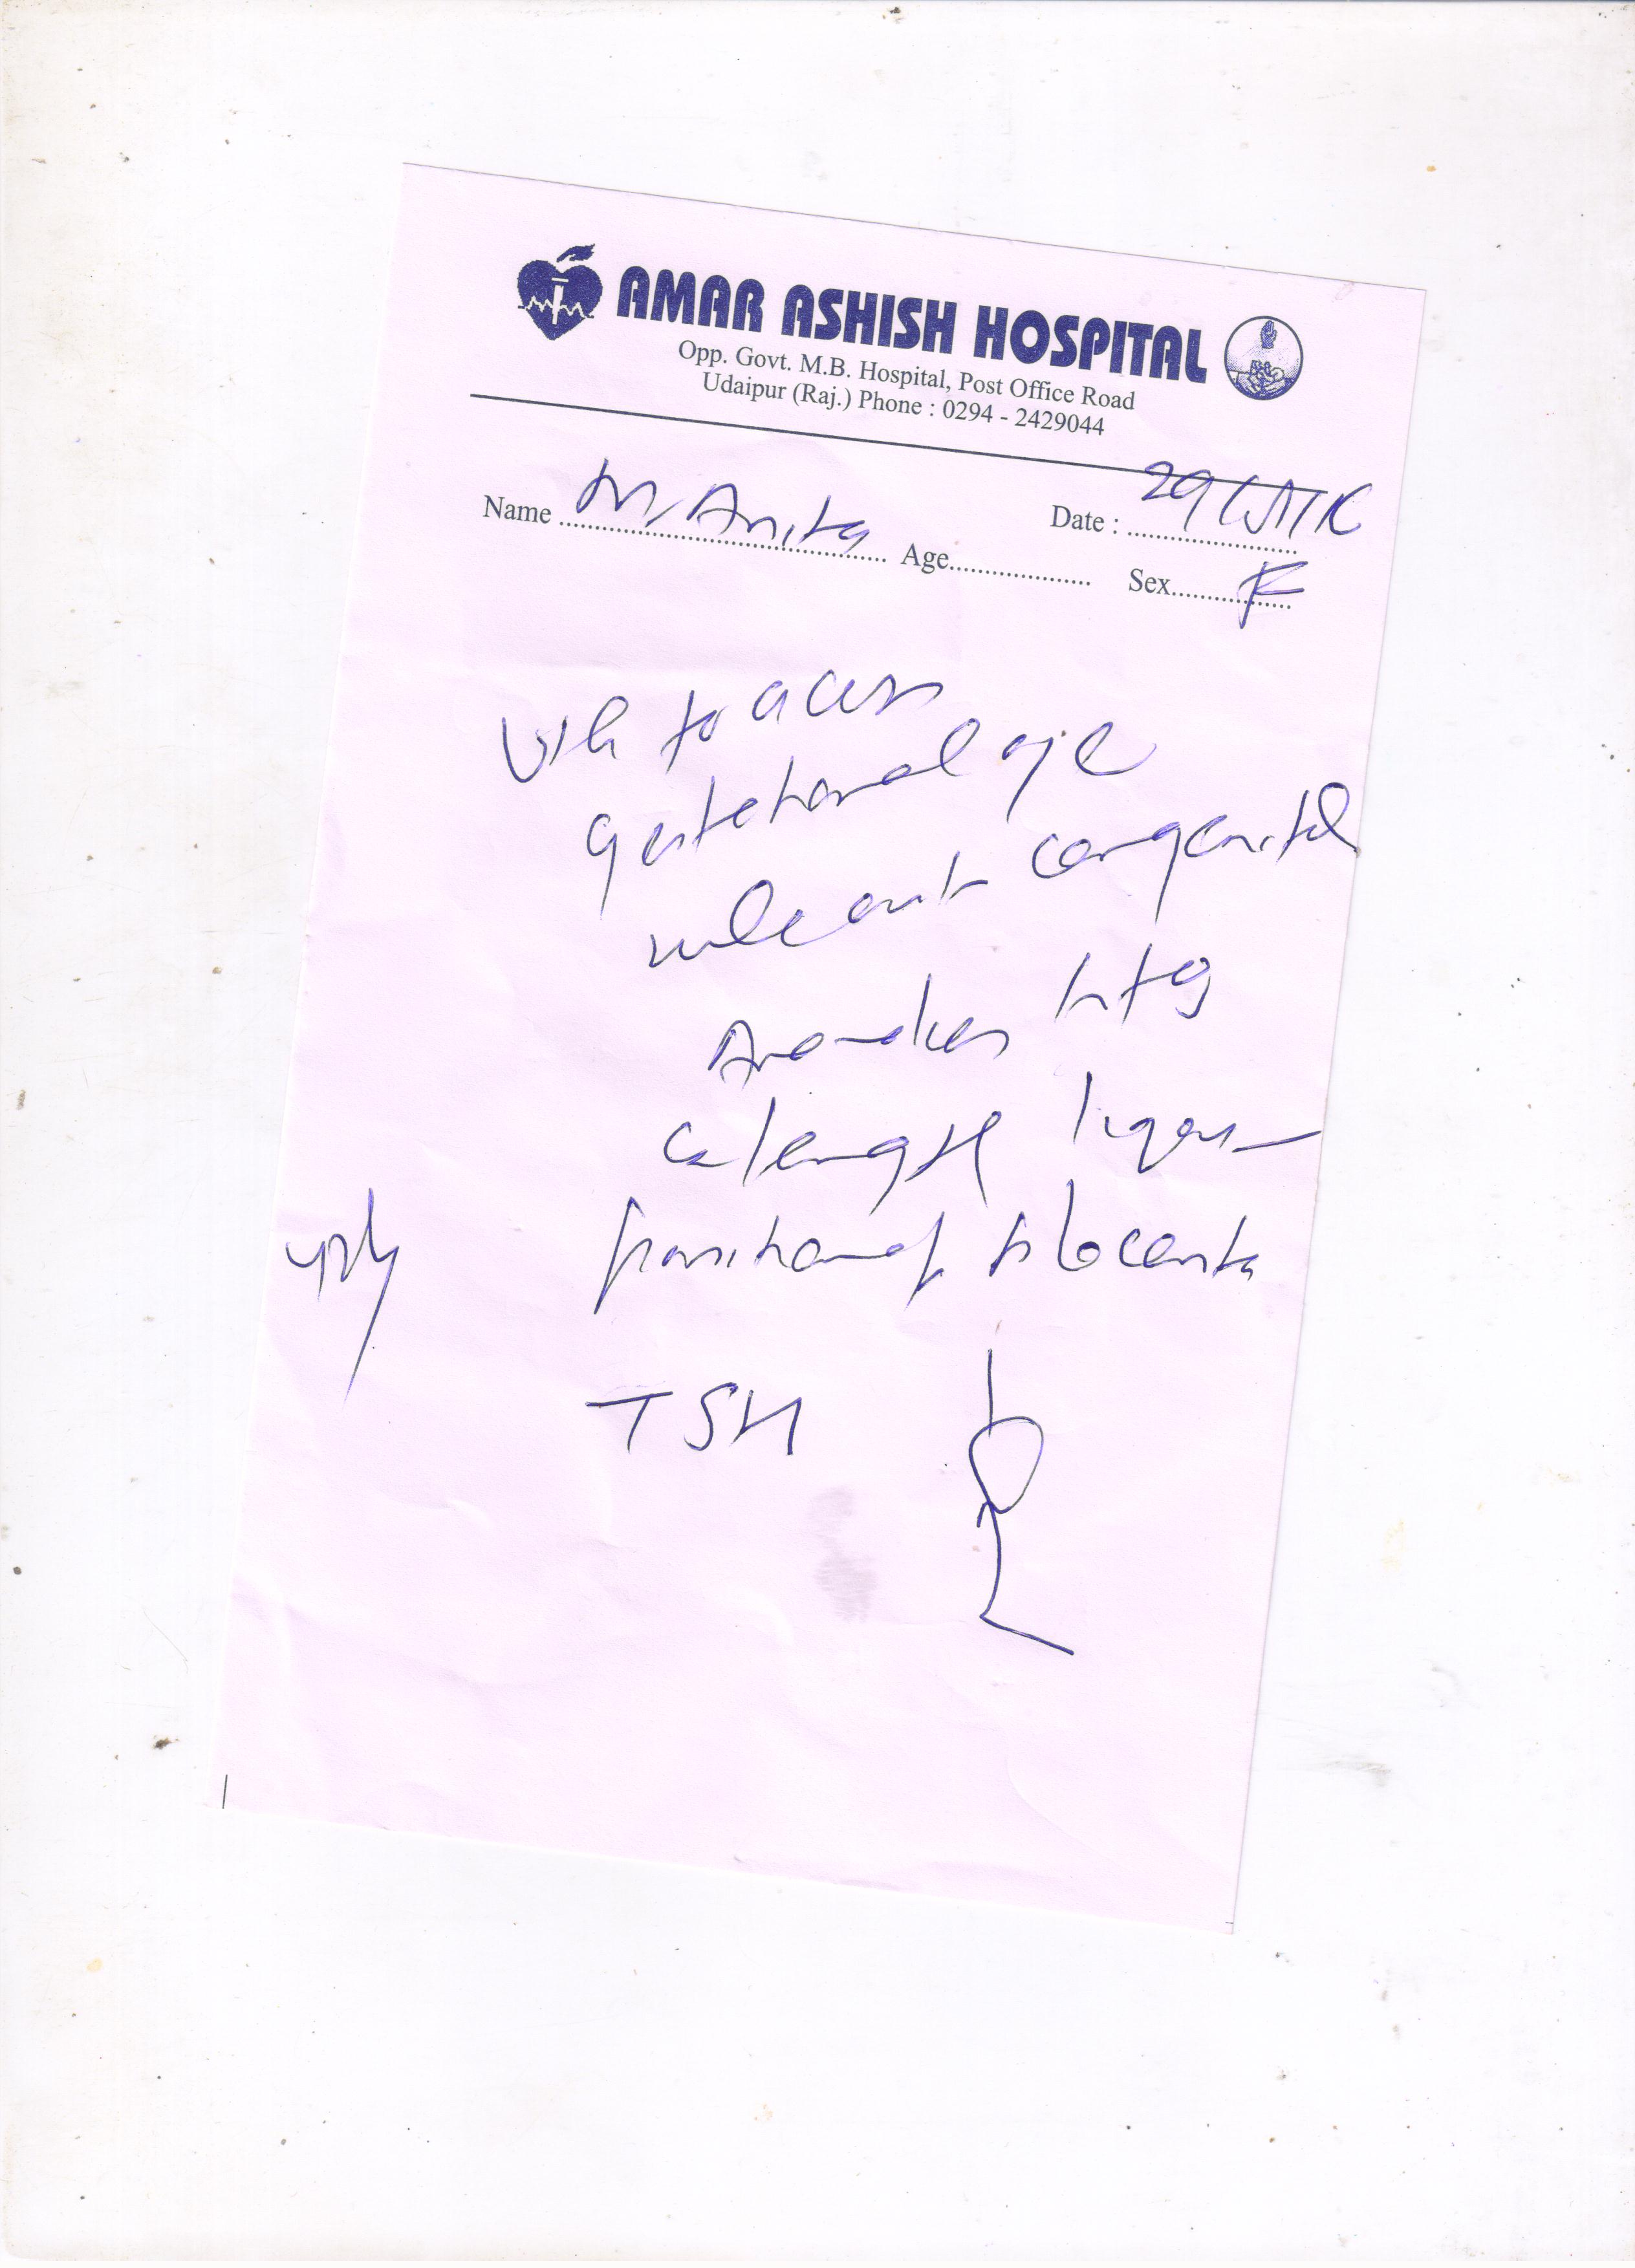 AMAR ASHISH HOSPITAL
Opp. Govt. M.B. Hospital, Post Office Road
Udaipur (Raj.) Phone : 0294 - 2429044
Name Anita Date : 29
Age Sex F
to
gestational age
rule out congenital
length liquor
position of placenta
TSH